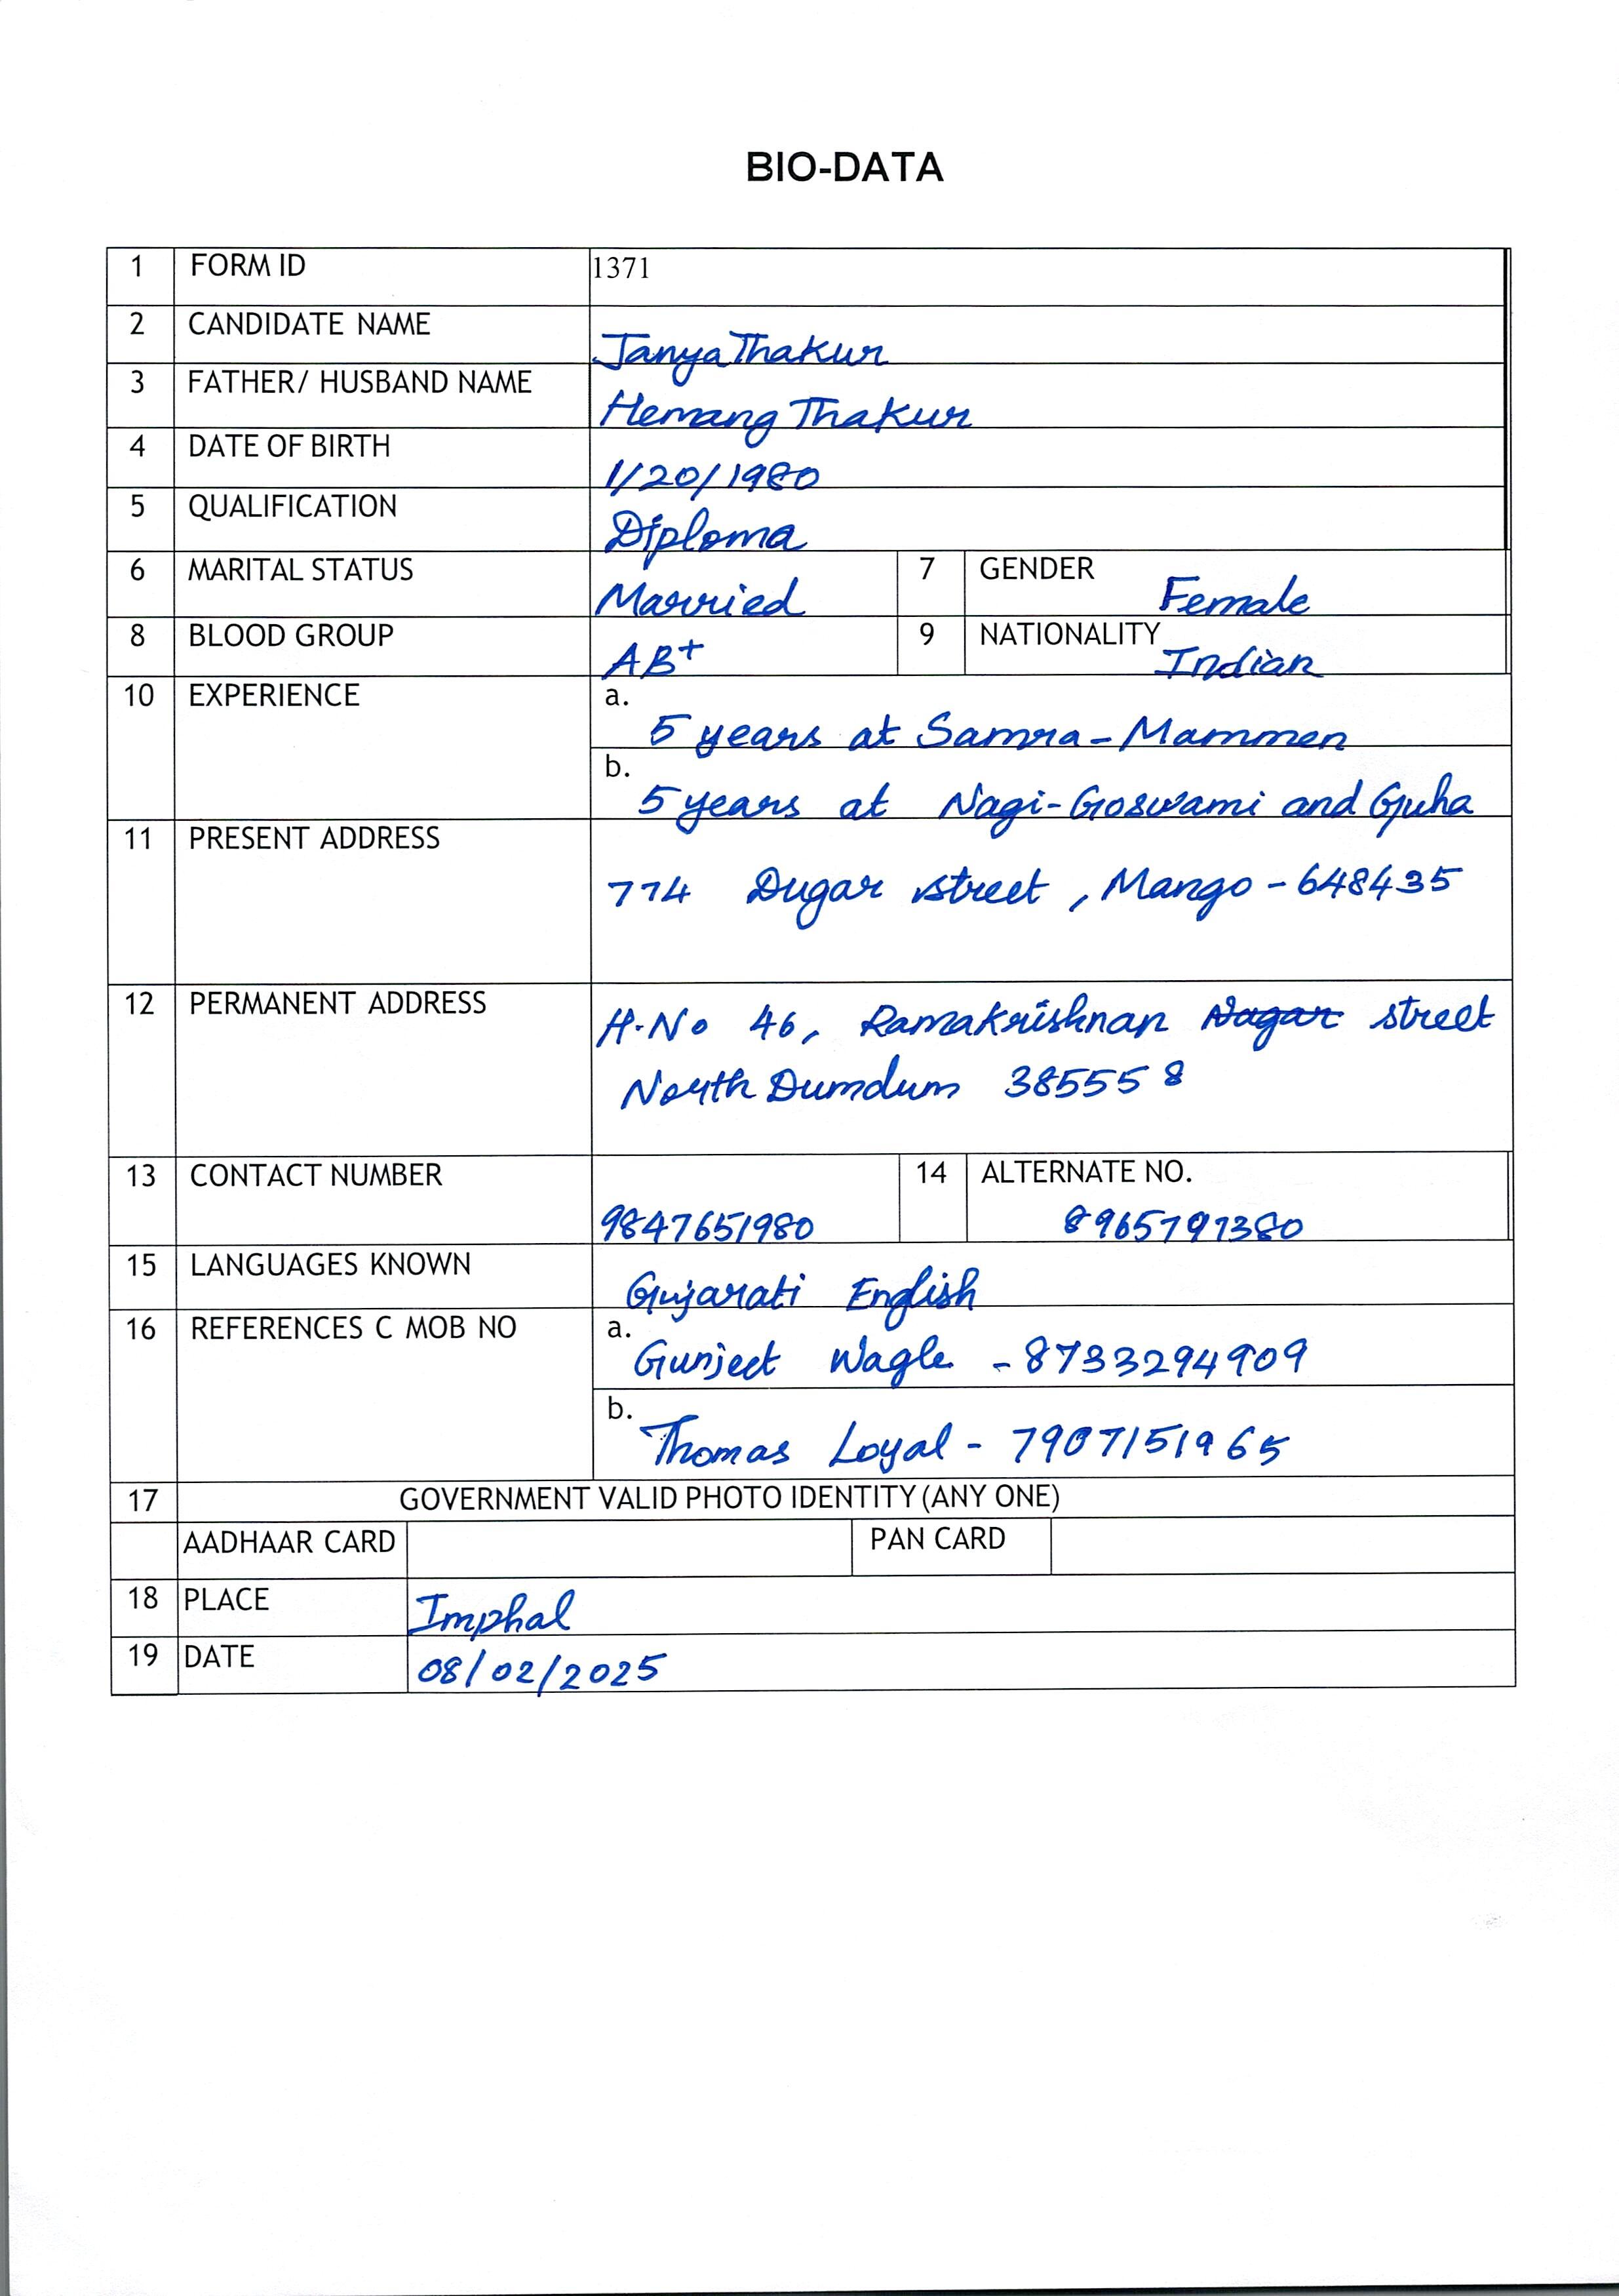 BIO-DATA
1 FORM ID 1371
2 CANDIDATE NAME Tanya Thakur
3 FATHER/ HUSBAND NAME Hemang Thakur
4 DATE OF BIRTH 1/20/1980
5 QUALIFICATION Diploma
6 MARITAL STATUS Married 7 GENDER Female
8 BLOOD GROUP AB+ 9 NATIONALITY Indian
10 EXPERIENCE a. 5 years at Samra-Mammen
b. 5 years at Nagi-Goswami and Guha
11 PRESENT ADDRESS
774 Dugar street, Mango-648435
12 PERMANENT ADDRESS H.No 46, Ramakrishnan Nagar street
North Dumdum 385558
13 CONTACT NUMBER 9847651980 14 ALTERNATE NO. 8965797380
15 LANGUAGES KNOWN Gujarati English
16 REFERENCES C MOB NO a. Gunjeet Wagle - 8733294909
b. Thomas Loyal - 7907151965
17 GOVERNMENT VALID PHOTO IDENTITY (ANY ONE)
AADHAAR CARD PAN CARD
18 PLACE Imphal
19 DATE 08/02/2025